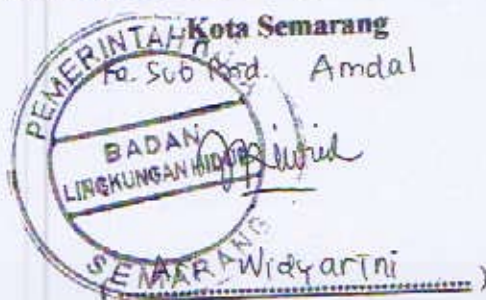 Kota Semarang
Ka. Sub Bid. Amdal
PEMERINTAH KOTA
BADAN
LINGKUNGAN HIDUP
SEMARANG
Widyarini )